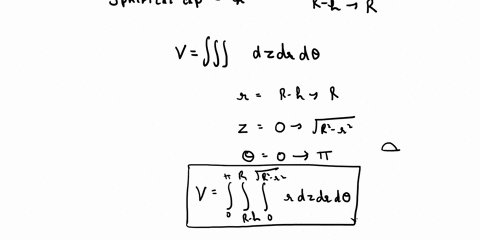 Spherical cap = R-h → R
V = ∭ dzdrdθ
r = R-h → R
z = 0 → √(R²-r²)
θ = 0 → π
V = ∫₀^π ∫_{R-h}^{R} ∫₀^{√(R²-r²)} r dz dr dθ